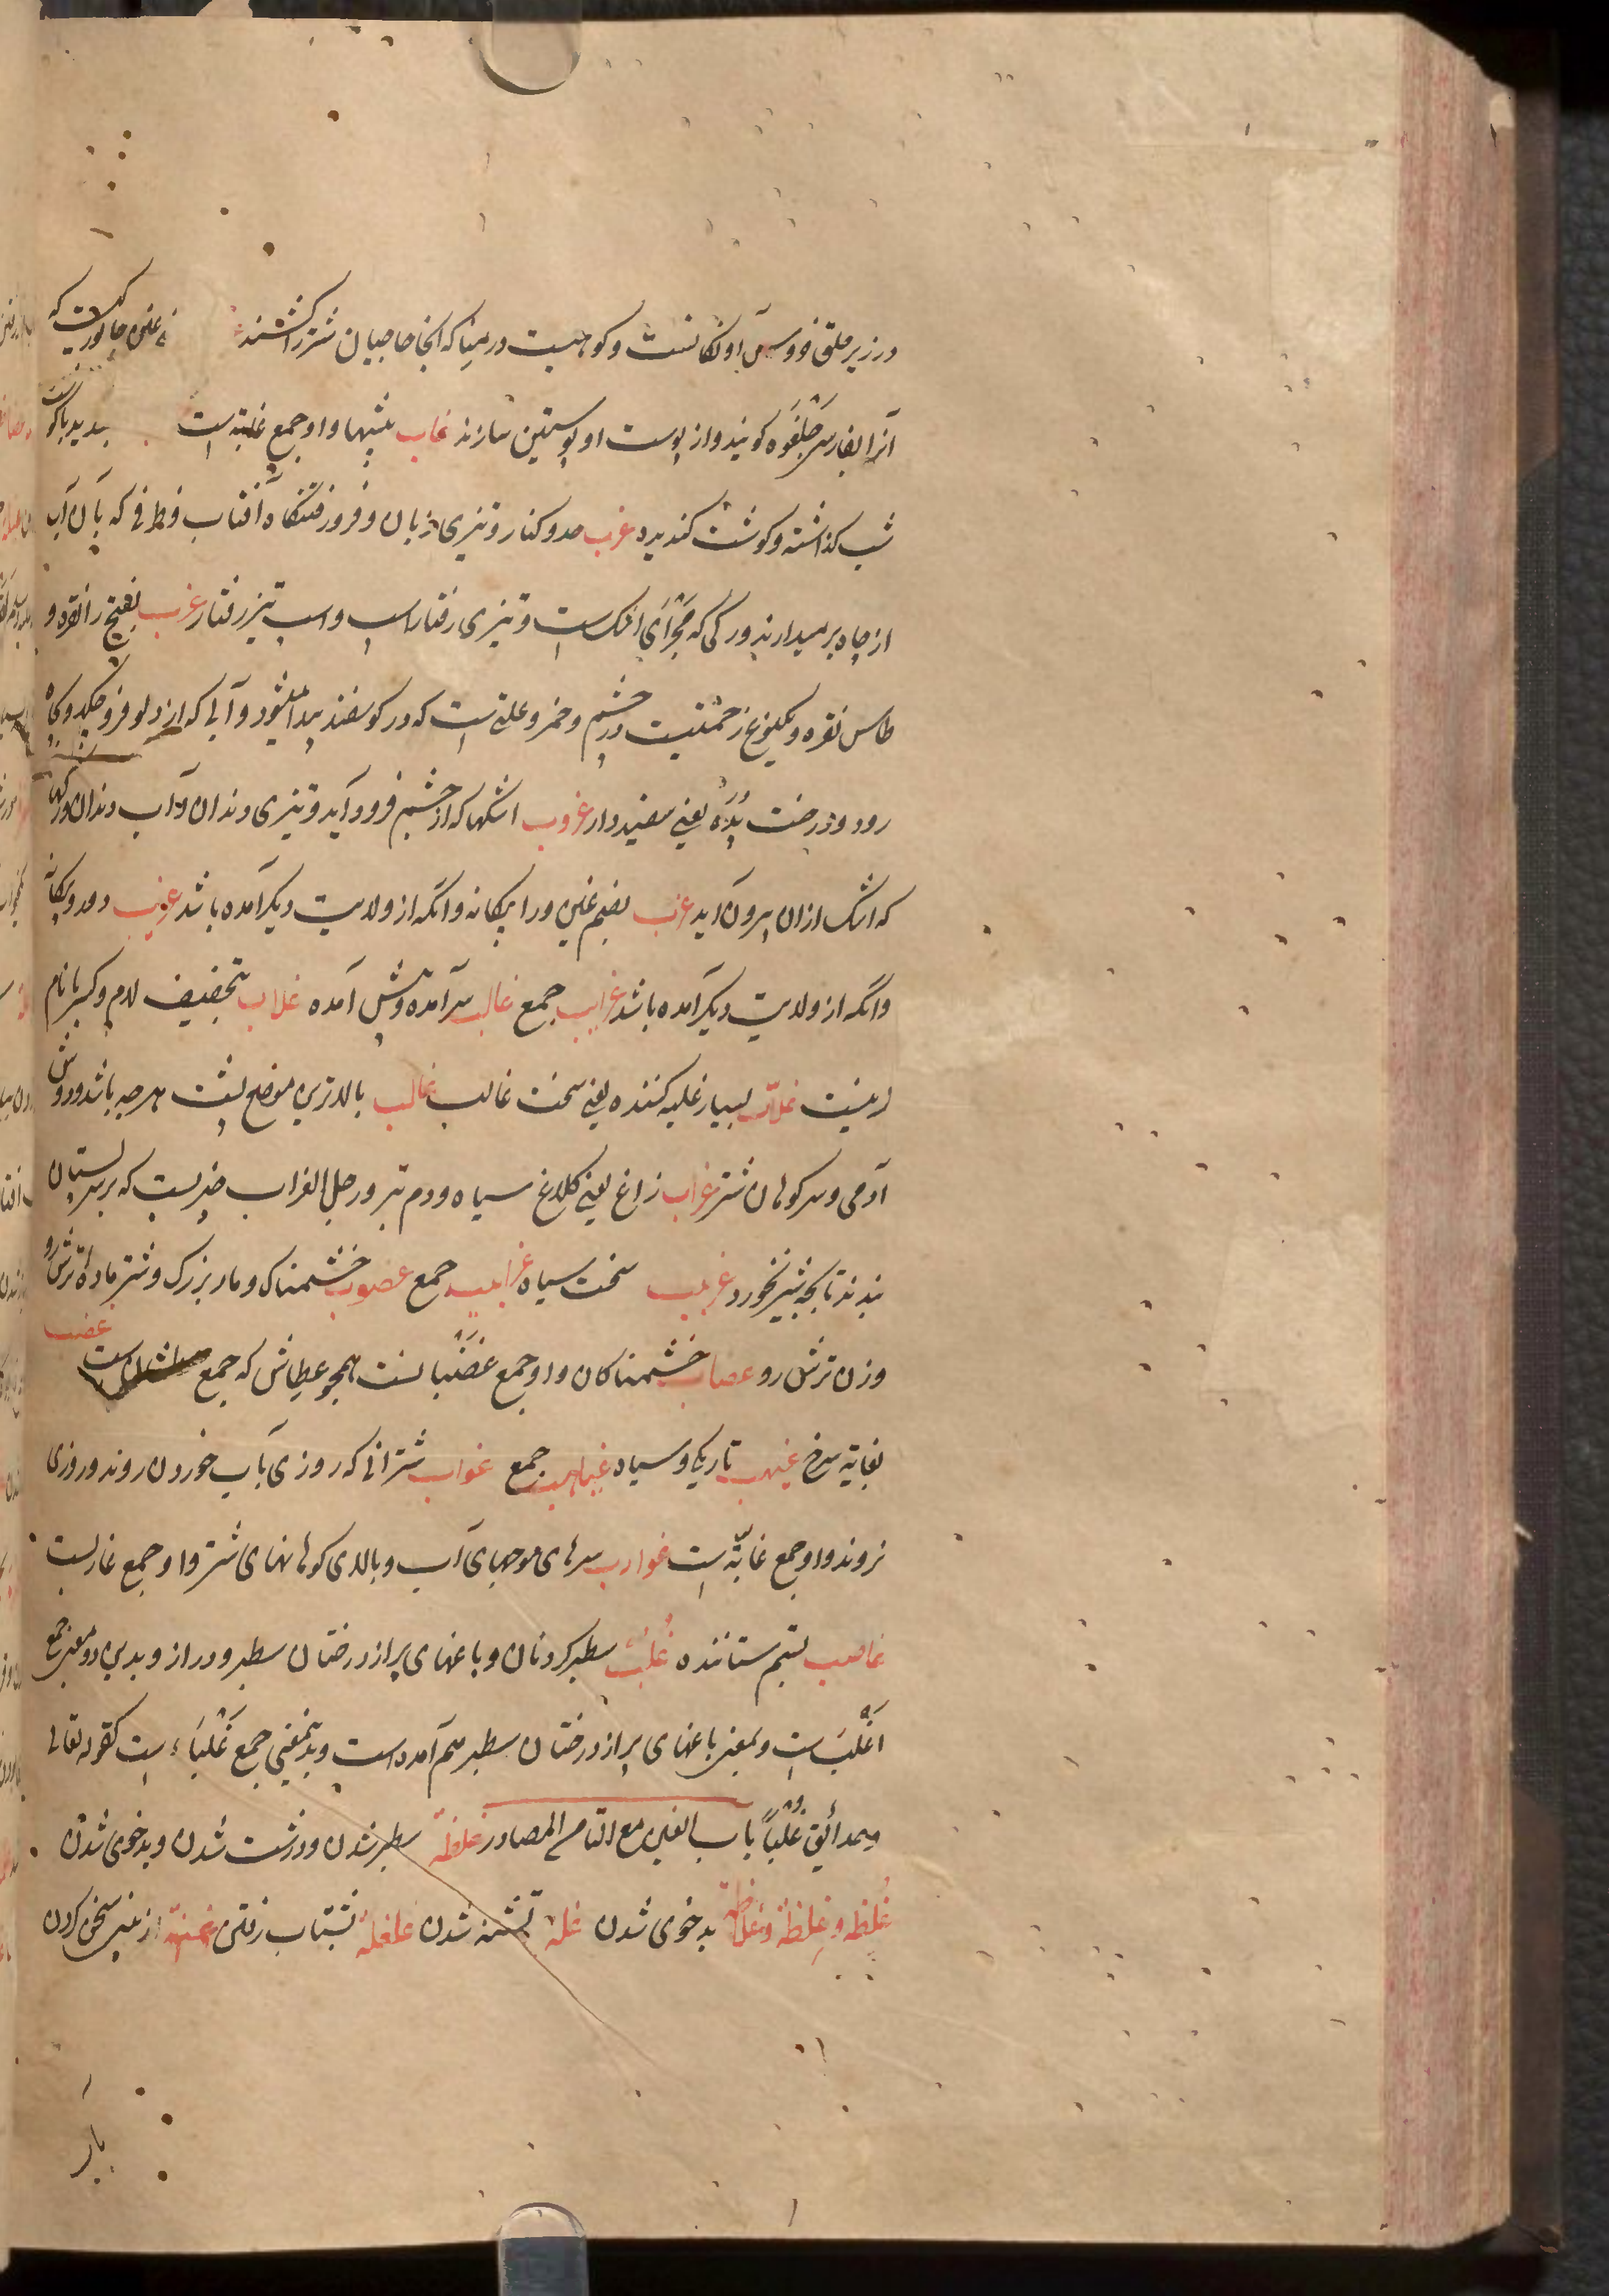 در زیر حلق خروس آونگانست و کوهیست در منا که آنجا حاجیان شتر را کشند غنجا جانوریست که
آنرا بفارسی خلغوه کویند و از پوست او پوستین سازند غاب بیشها و او جمع غابة است
شب کذاشته و کوشت کندیده غرب حد و کنار و تیزی زبان و فرو رفتنکاه آفتاب و ظرفی که بآن آب
از چاه برمیدارند و رکی که مجرای اشک است و تیزی رفتار اسپ و اسپ تیز رفتار غرب بفتح را نقره و
طاس نقره و یکنوع زحمتیست در چشم و خمر و علتی است که در کوسفند پیدا میشود و آبی که از دلو فرو چکد و کیاه
رود و درخت بُدَه یعنی سفیددار غروب اشکها که از چشم فرود آید و تیزی دندان و آب دندان و رکها
که اشک از ان بیرون آید غرب بضم غین و را بیکانه و آنکه از ولایت دیکر آمده باشد غریب دور و بیکانه
و آنکه از ولایت دیکر آمده باشد غرایب جمع غالب سرآمده و پیش آمده غلاب بتخفیف لام و کسر با نام
زنیست غلاب بسیار غلبه کننده یعنی سخت غالب غارب بالاترین موضع پشت هرچه باشد و دوش
آدمی و سر کوهان شتر غراب زاغ یعنی کلاغ سیاه و دم تبر و رجل الغراب چیزیست که بر پستان
بندند تا بچه شیر نخورد غربیب سخت سیاه غرابیب جمع غضوب خشمناک و مار بزرک و شتر ماده ترش رو
و زن ترش رو غضاب خشمناکان و او جمع غضبانست همچو عطاش که جمع عطشانست غضب
بغایة سرخ غیهب تاریکی و سیاه غیاهب جمع غواب شترانی که روزی بآب خوردن روند و روزی
نروند و او جمع غابّة است غوارب سرهای موجهای آب و بالای کوهانهای شتر و او جمع غاربست
غاصب بستم ستاننده غُلب سطبر کردنان و باغهای پر از درختان سطبر و دراز و بدین دو معنی جمع
اَغلبَ است و بمعنی باغهای پر از درختان سطبر هم آمده است و بدینمعنی جمع غَلْبَاء است کقوله تعالی
و حدائق غُلْباً باب الغین مع التا من المصادر غلظة سطبر شدن و درشت شدن و بدخوی شدن
غُلظة و غِلظة و غلاظة بدخوی شدن غلة تشنه شدن غلغلة بشتاب رفتن غمغمة از بینی سخن کردن